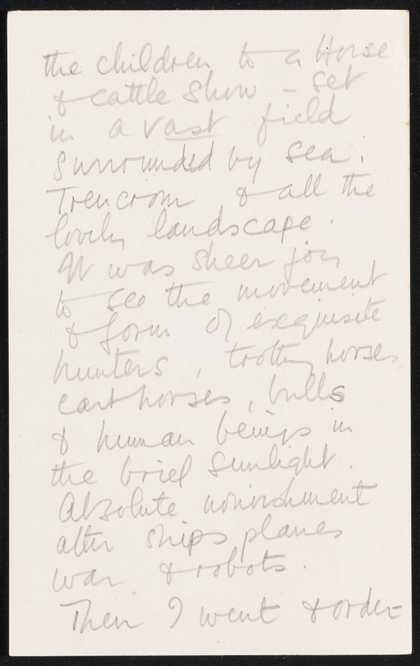 the children to a Horse
& cattle show – set
in a vast field
surrounded by sea.
Trencrom & all the
lovely landscape.
It was sheer joy
to see the movement
& form of exquisite
hunters, trotting horses
cart horses, bulls
& human beings in
the brief sunlight.
Absolute nourishment
after ships planes
war & robots.
Then I went & order-